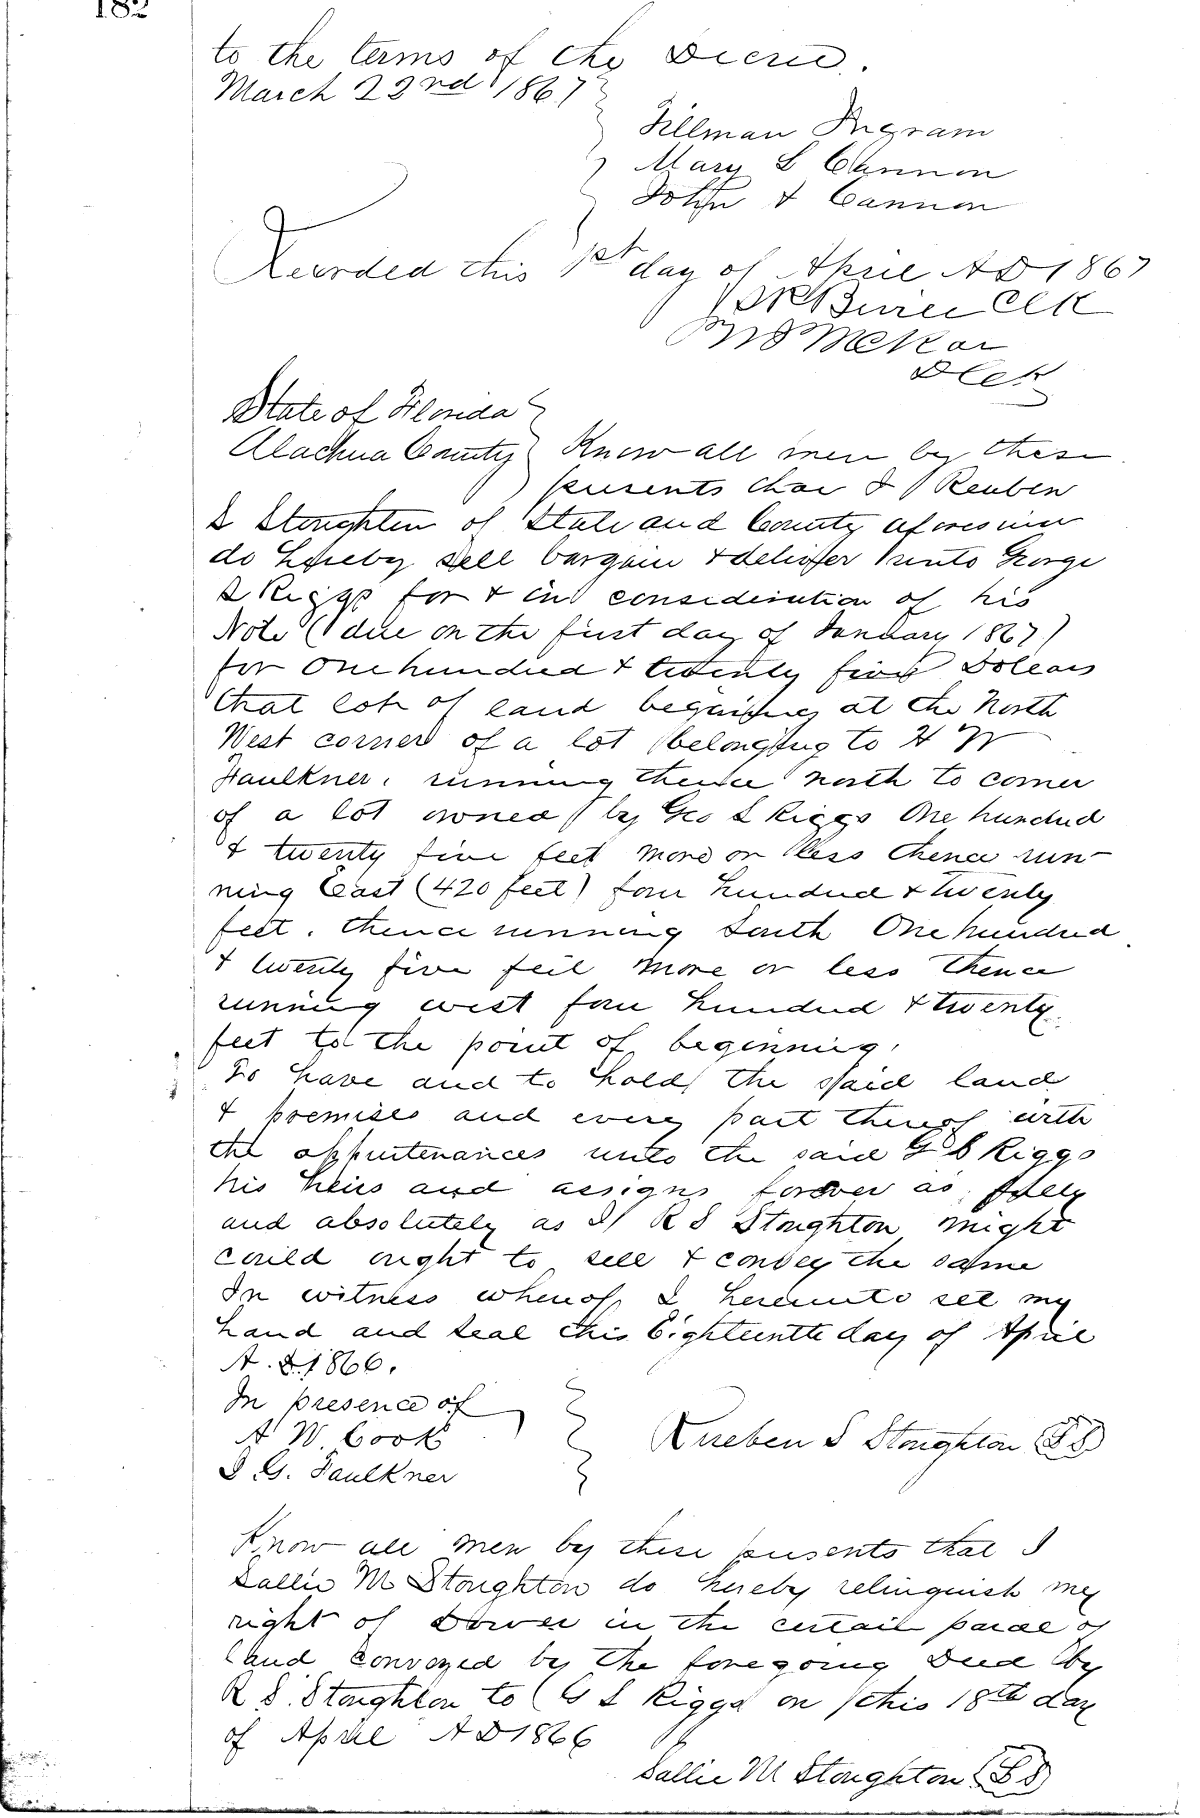 182
to the terms of the Decree.
March 22nd 1867
Tillman Ingram
Mary L Cannon
John & Cannon
Recorded this 1st day of April AD 1867
Clk
D Clk
State of Florida
Alachua County Know all men by these
presents that I Reuben
S Stoughton of State and County aforesaid
do hereby sell bargain & deliver unto George
S Riggs for & in consideration of his
Note (due on the first day of January 1867)
for One hundred & twenty five Dollars
that lot of land begaining at the North
West corner of a lot belonging to H W
Faulkner. running thence north to corner
of a lot owned by Geo S Riggs One hundred
& twenty five feet more or less thence run-
ning East (420 feet) four hundred & twenty
feet. thence running South One hundred
& twenty five feet more or less thence
running west four hundred & twenty
feet to the point of beginning.
To have and to hold the said land
& premises and every part thereof with
the appurtenances unto the said G S Riggs
his heirs and assigns forever as fully
and absolutely as I R S Stoughton might
could ought to sell & convey the same
In witness whereof I hereunto set my
hand and seal this Eighteenth day of April
A.D. 1866.
In presence of
A W Cook
J G. Faulkner
Rueben S Stoughton (LS)
Know all men by these presents that I
Sallie M Stoughton do hereby relinquish my
right of Dower in the certain parcel of
land conveyed by the foregoing Deed by
R S. Stoughton to G S Riggs on this 18th day
of April AD 1866
Sallie M Stoughton (LS)